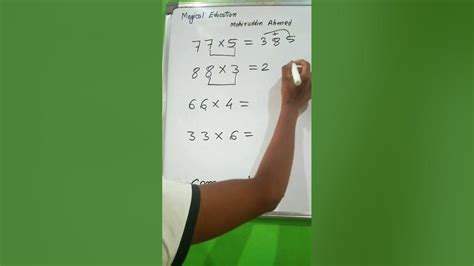 Magical Education
Mohiruddin Ahmed
77 × 5 = 385
+
88 × 3 = 2
66 × 4 =
33 × 6 =